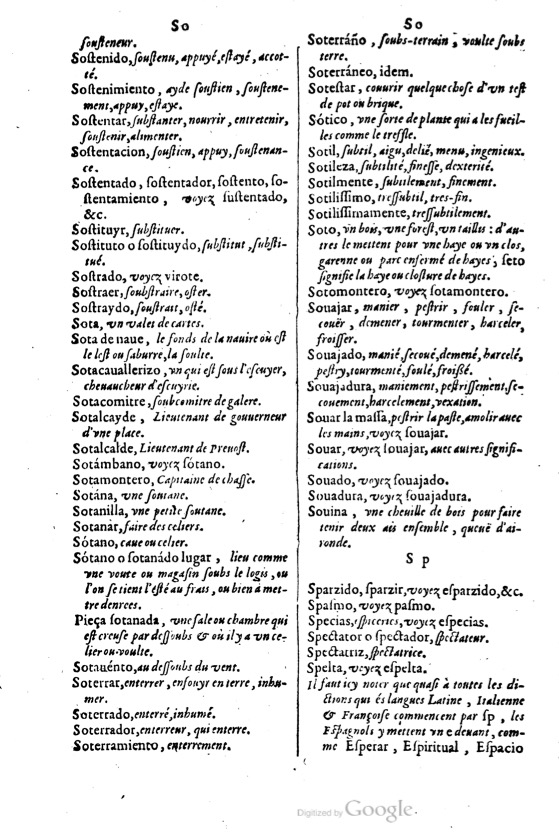 So
ſouſteneur.
Soſtenido, ſouſtenu, appuyé, eſtayé, accot-
té.
Soſtenimiento, ayde ſouſtien, ſouſtene-
ment, appuy, eſtaye.
Soſtentar, ſubſtanter, nourrir, entretenir,
ſouſtenir, alimenter.
Soſtentacion, ſouſtien, appuy, ſouſtenan-
ce.
Soſtentado, ſoſtentador, ſoſtento, ſo-
ſtentamiento, voyez ſuſtentado,
&c.
Soſtituyr, ſubſtituer.
Soſtituto o ſoſtituydo, ſubſtitut, ſubſti-
tué.
Soſtrado, voyez virote.
Soſtraer, ſouſtraire, oſter.
Soſtraydo, ſouſtrait, oſté.
Sota, vn vales de cartes.
Sota de naue, le fonds de la nauire où eſt
le leſt ou ſaburre, la ſoulte.
Sotacauallerizo, vn qui eſt ſous l'eſcuyer,
cheuaucheur d'eſcuyrie.
Sotacomitre, ſoubcomitre de galere.
Sotalcayde, Lieutenant de gouuerneur
d'vne place.
Sotalcalde, Lieutenant de Preuoſt.
Sotámbano, voyez ſótano.
Sotamontero, Capitaine de chaſſe.
Sotána, vne ſoutane.
Sotanilla, vne petite ſoutane.
Sotanar, faire des celiers.
Sótano, caue ou celier.
Sótano o ſotanádo lugar, lieu comme
vne voute ou magaſin ſoubs le logis, ou
l'on ſe tient l'eſté au frais, ou bien à met-
tre denrees.
Pieça ſotanada, vne ſale ou chambre qui
eſt creuſe par deſſoubs & où il y a vn ce-
lier ou voulte.
Sotauénto, au deſſoubs du vent.
Soterrar, enterrer, enfouyr en terre, inhu-
mer.
Soterrado, enterré, inhumé.
Soterrador, enterreur, qui enterre.
Soterramiento, enterrement.
So
Soterráño, ſoubs-terrain, voulte ſoubs
terre.
Soterráneo, idem.
Soteſtar, couurir quelque choſe d'vn teſt
de pot ou brique.
Sótico, vne ſorte de plante qui a les fueil-
les comme le treffle.
Sotil, ſubtil, aigu, delié, menu, ingenieux.
Sotileza, ſubtilité, fineſſe, dexterité.
Sotilmente, ſubtilement, finement.
Sotiliſſimo, treſſubtil, tres-fin.
Sotiliſſimamente, treſſubtilement.
Soto, vn bois, vne foreſt, vn taillis: d'au-
tres le mettent pour vne haye ou vn clos,
garenne ou parc enfermé de hayes, ſeto
ſignifie la haye ou cloſture de hayes.
Sotomontero, voyez ſotamontero.
Souajar, manier, peſtrir, fouler, ſe-
couër, demener, tourmenter, harceler,
froiſſer.
Souajado, manié, ſecoué, demené, harcelé,
peſtry, tourmenté, foulé, froiſſé.
Souajadura, maniement, peſtriſſement, ſe-
couement, harcelement, vexation.
Souar la maſſa, peſtrir la paſte, amolir auec
les mains, voyez ſouajar.
Souar, voyez ſouajar, auec autres ſignifi-
cations.
Souado, voyez ſouajado.
Souadura, voyez ſouajadura.
Souina, vne cheuille de bois pour faire
tenir deux ais enſemble, queuë d'ai-
ronde.
Sp
Sparzido, ſparzir, voyez eſparzido, &c.
Paſmo, voyez paſmo.
Specias, eſpiceries, voyez eſpecias.
Spectator o ſpectador, ſpectateur.
Spectatriz, ſpectatrice.
Spelta, voyez eſpelta.
Il faut icy noter que quaſi à toutes les di-
ctions qui és langues Latine, Italienne
& Françoiſe commencent par ſp, les
Eſpagnols y mettent vn e deuant, com-
me Eſperar, Eſpiritual, Eſpacio
Digitized by Google